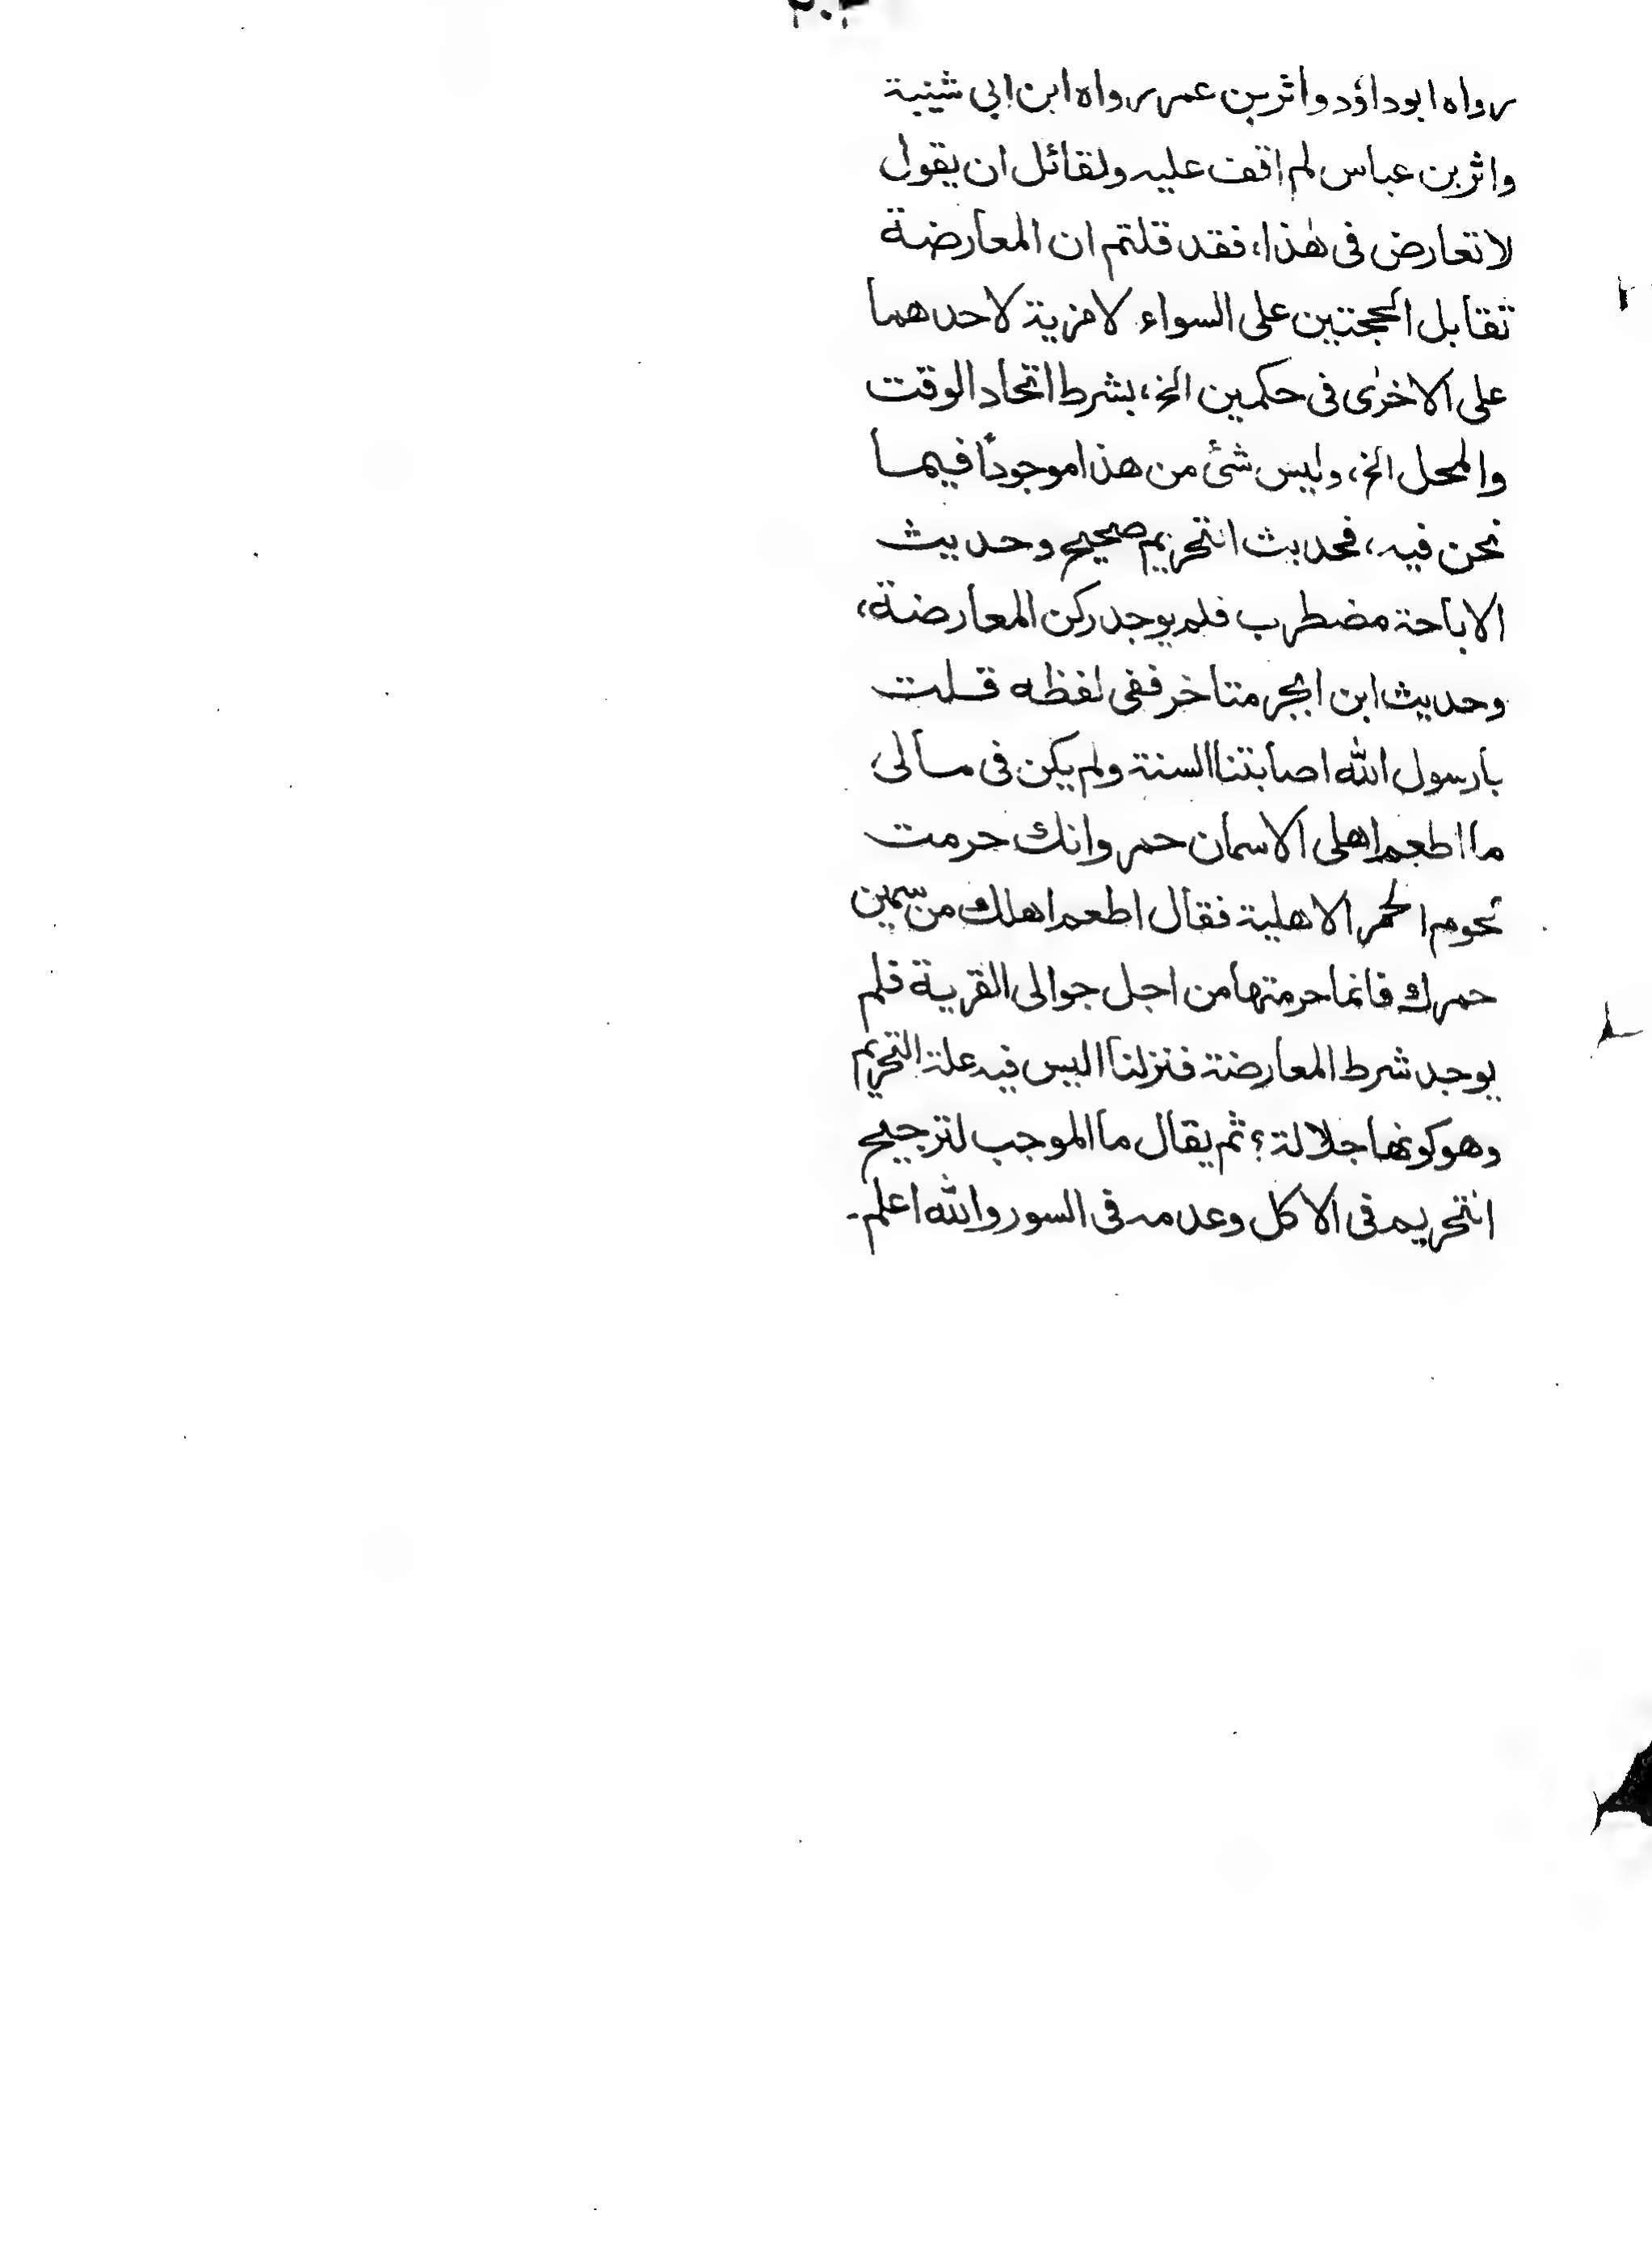 رواه ابوداؤد واثربن عمر رواه ابن ابي شيبة
واثربن عباس لم اقف عليه ولقائل ان يقول
لا تعارض فى هٰذا، فقد قلتم ان المعارضة
تقابل الحجتين على السواء لا مزية لاحدهما
على الاخرٰى فى حكمين الخ، بشرط اتحاد الوقت
والمحل الخ، وليس شئ من هذا موجوداً فيما
نحن فيه، فحديث التحريم صحيح وحديث
الاباحة مضطرب فلم يوجد ركن المعارضة،
وحديث ابن ابجر متاخر ففى لفظه قلت
يارسول الله اصابتنا السنة ولم يكن فى مالى
ما اطعم اهلى الا سمان حمر وانك حرمت
لحوم الحمر الاهلية فقال اطعم اهلك من سمين
حمرك فانما حرمتها من اجل جوالى القرية فلم
يوجد شرط المعارضة فنزلنا اليس فيه علة التحريم
وهو كونها جلالة؟ ثم يقال ما الموجب لترجيح
التحريم فى الاكل وعدمه فى السور والله اعلم۔